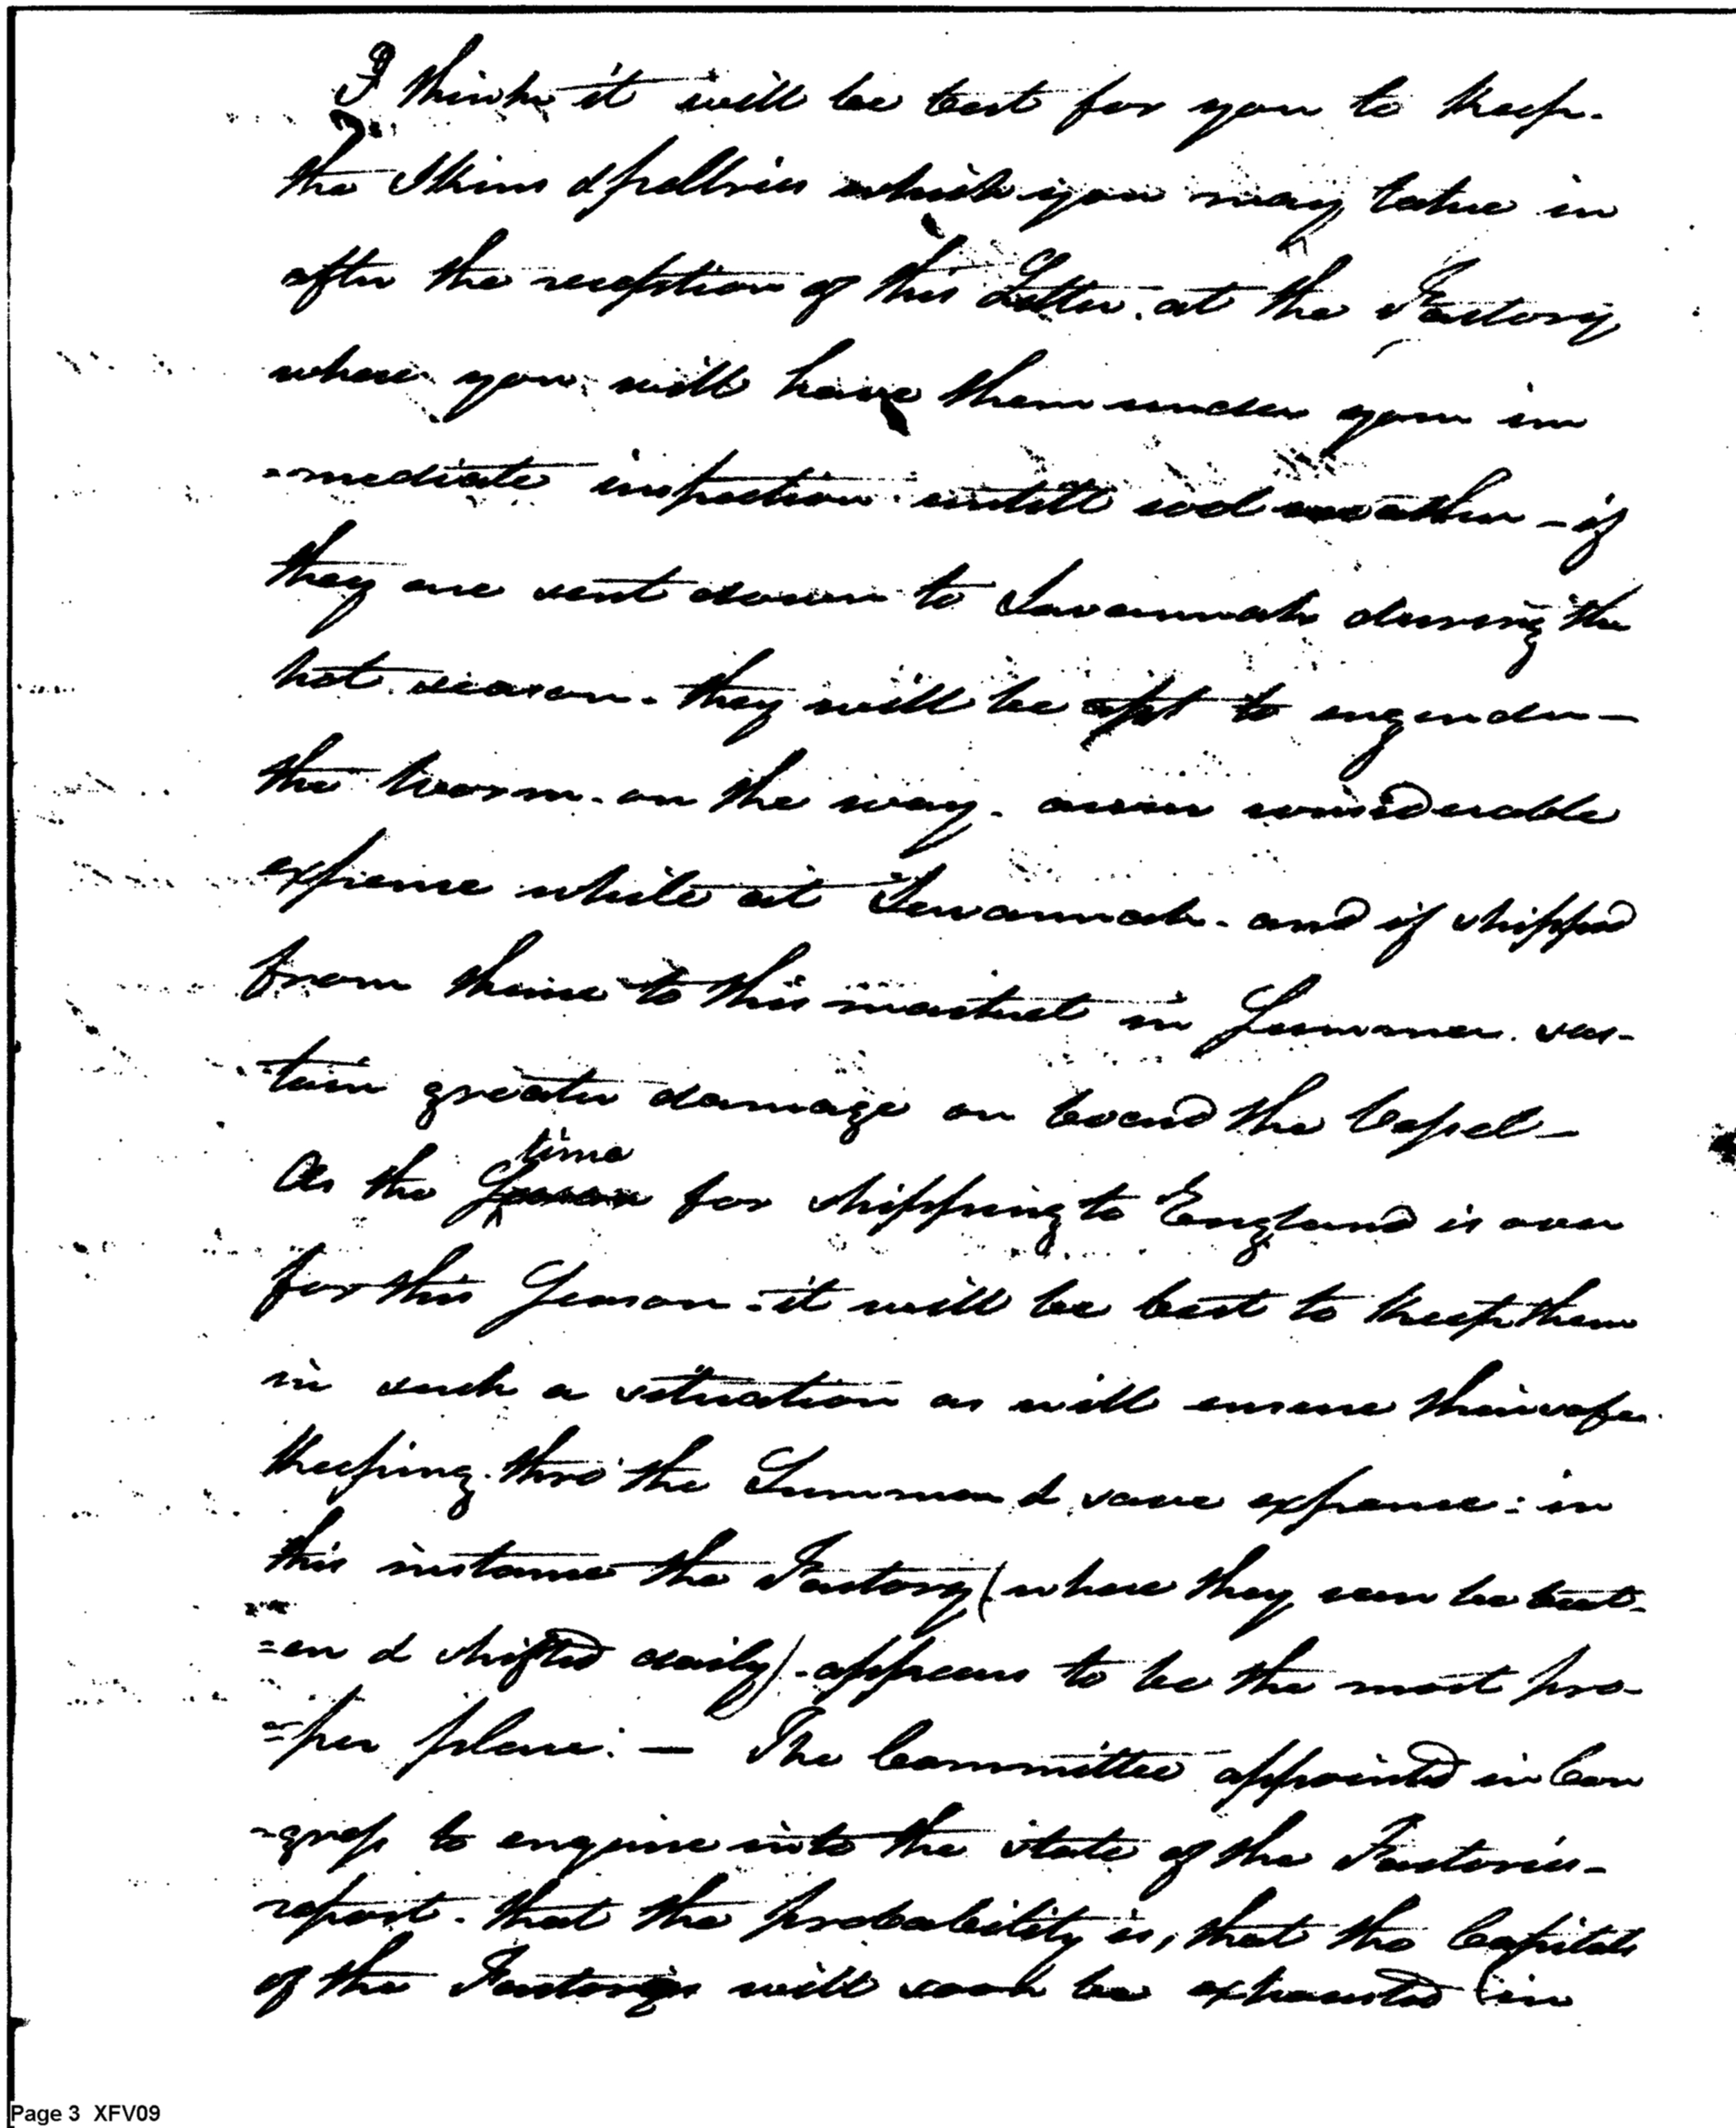 I think it will be best for you to keep.
the Skins & peltries which you may take in
after the reception of this Letter. at the Factory
where you will have them under your im
=mediate inspection untill cool weather - if
they are sent down to Savannah during the
hot season. they will be apt to engender -
the Worm. on the way. considerable
expence while at Savannah. and if shipped
from thence to this market in Summer. sus-
tain greater damage on board the Vessel -
time
As the Season for shipping to England is over
for this Season. it will be best to keep them
in such a situation as will ensure their safe
keeping. thro' the Summer & save expence: in
this instance the Factory (where they can be beat-
=en & shifted daily) - appears to be the most pro-
=per place. — The Committee appointed in Con
=gress to enquire into the state of the Factories -
report. that the probability is, that the Capitals
of the Factories will soon be exhausted (in
Page 3 XFV09